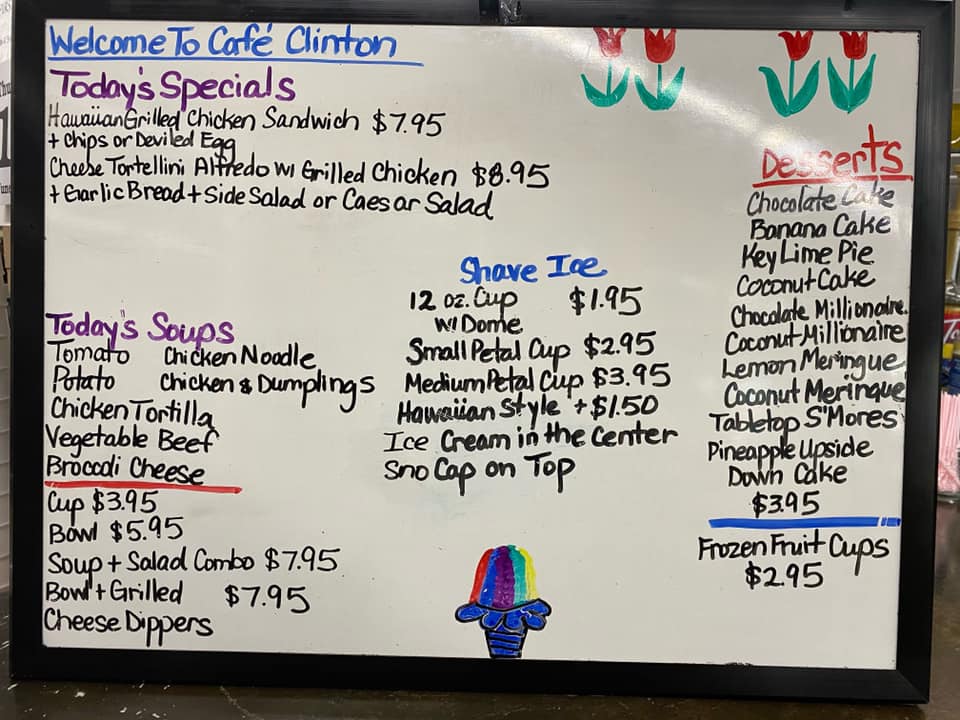 Welcome To Café Clinton
Today's Specials
Hawaiian Grilled Chicken Sandwich $7.95
+ Chips or Deviled Egg
Cheese Tortellini Alfredo w/ Grilled Chicken $8.95
+ Garlic Bread + Side Salad or Caesar Salad
Today's Soups
Tomato Chicken Noodle
Potato Chicken & Dumplings
Chicken Tortilla
Vegetable Beef
Broccoli Cheese
Cup $3.95
Bowl $5.95
Soup + Salad Combo $7.95
Bowl + Grilled $7.95
Cheese Dippers
Shave Ice
12 oz. Cup $1.95
w/ Dome
Small Petal Cup $2.95
Medium Petal Cup $3.95
Hawaiian Style + $1.50
Ice Cream in the Center
Sno Cap on Top
Desserts
Chocolate Cake
Banana Cake
Key Lime Pie
Coconut Cake
Chocolate Millionaire
Coconut Millionaire
Lemon Meringue
Coconut Meringue
Tabletop S'Mores
Pineapple Upside
Down Cake
$3.95
Frozen Fruit Cups
$2.95